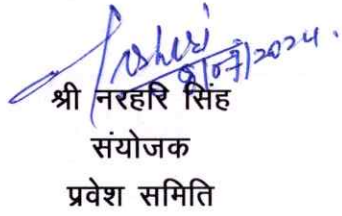 8/07/2024.
श्री नरहरि सिंह
संयोजक
प्रवेश समिति